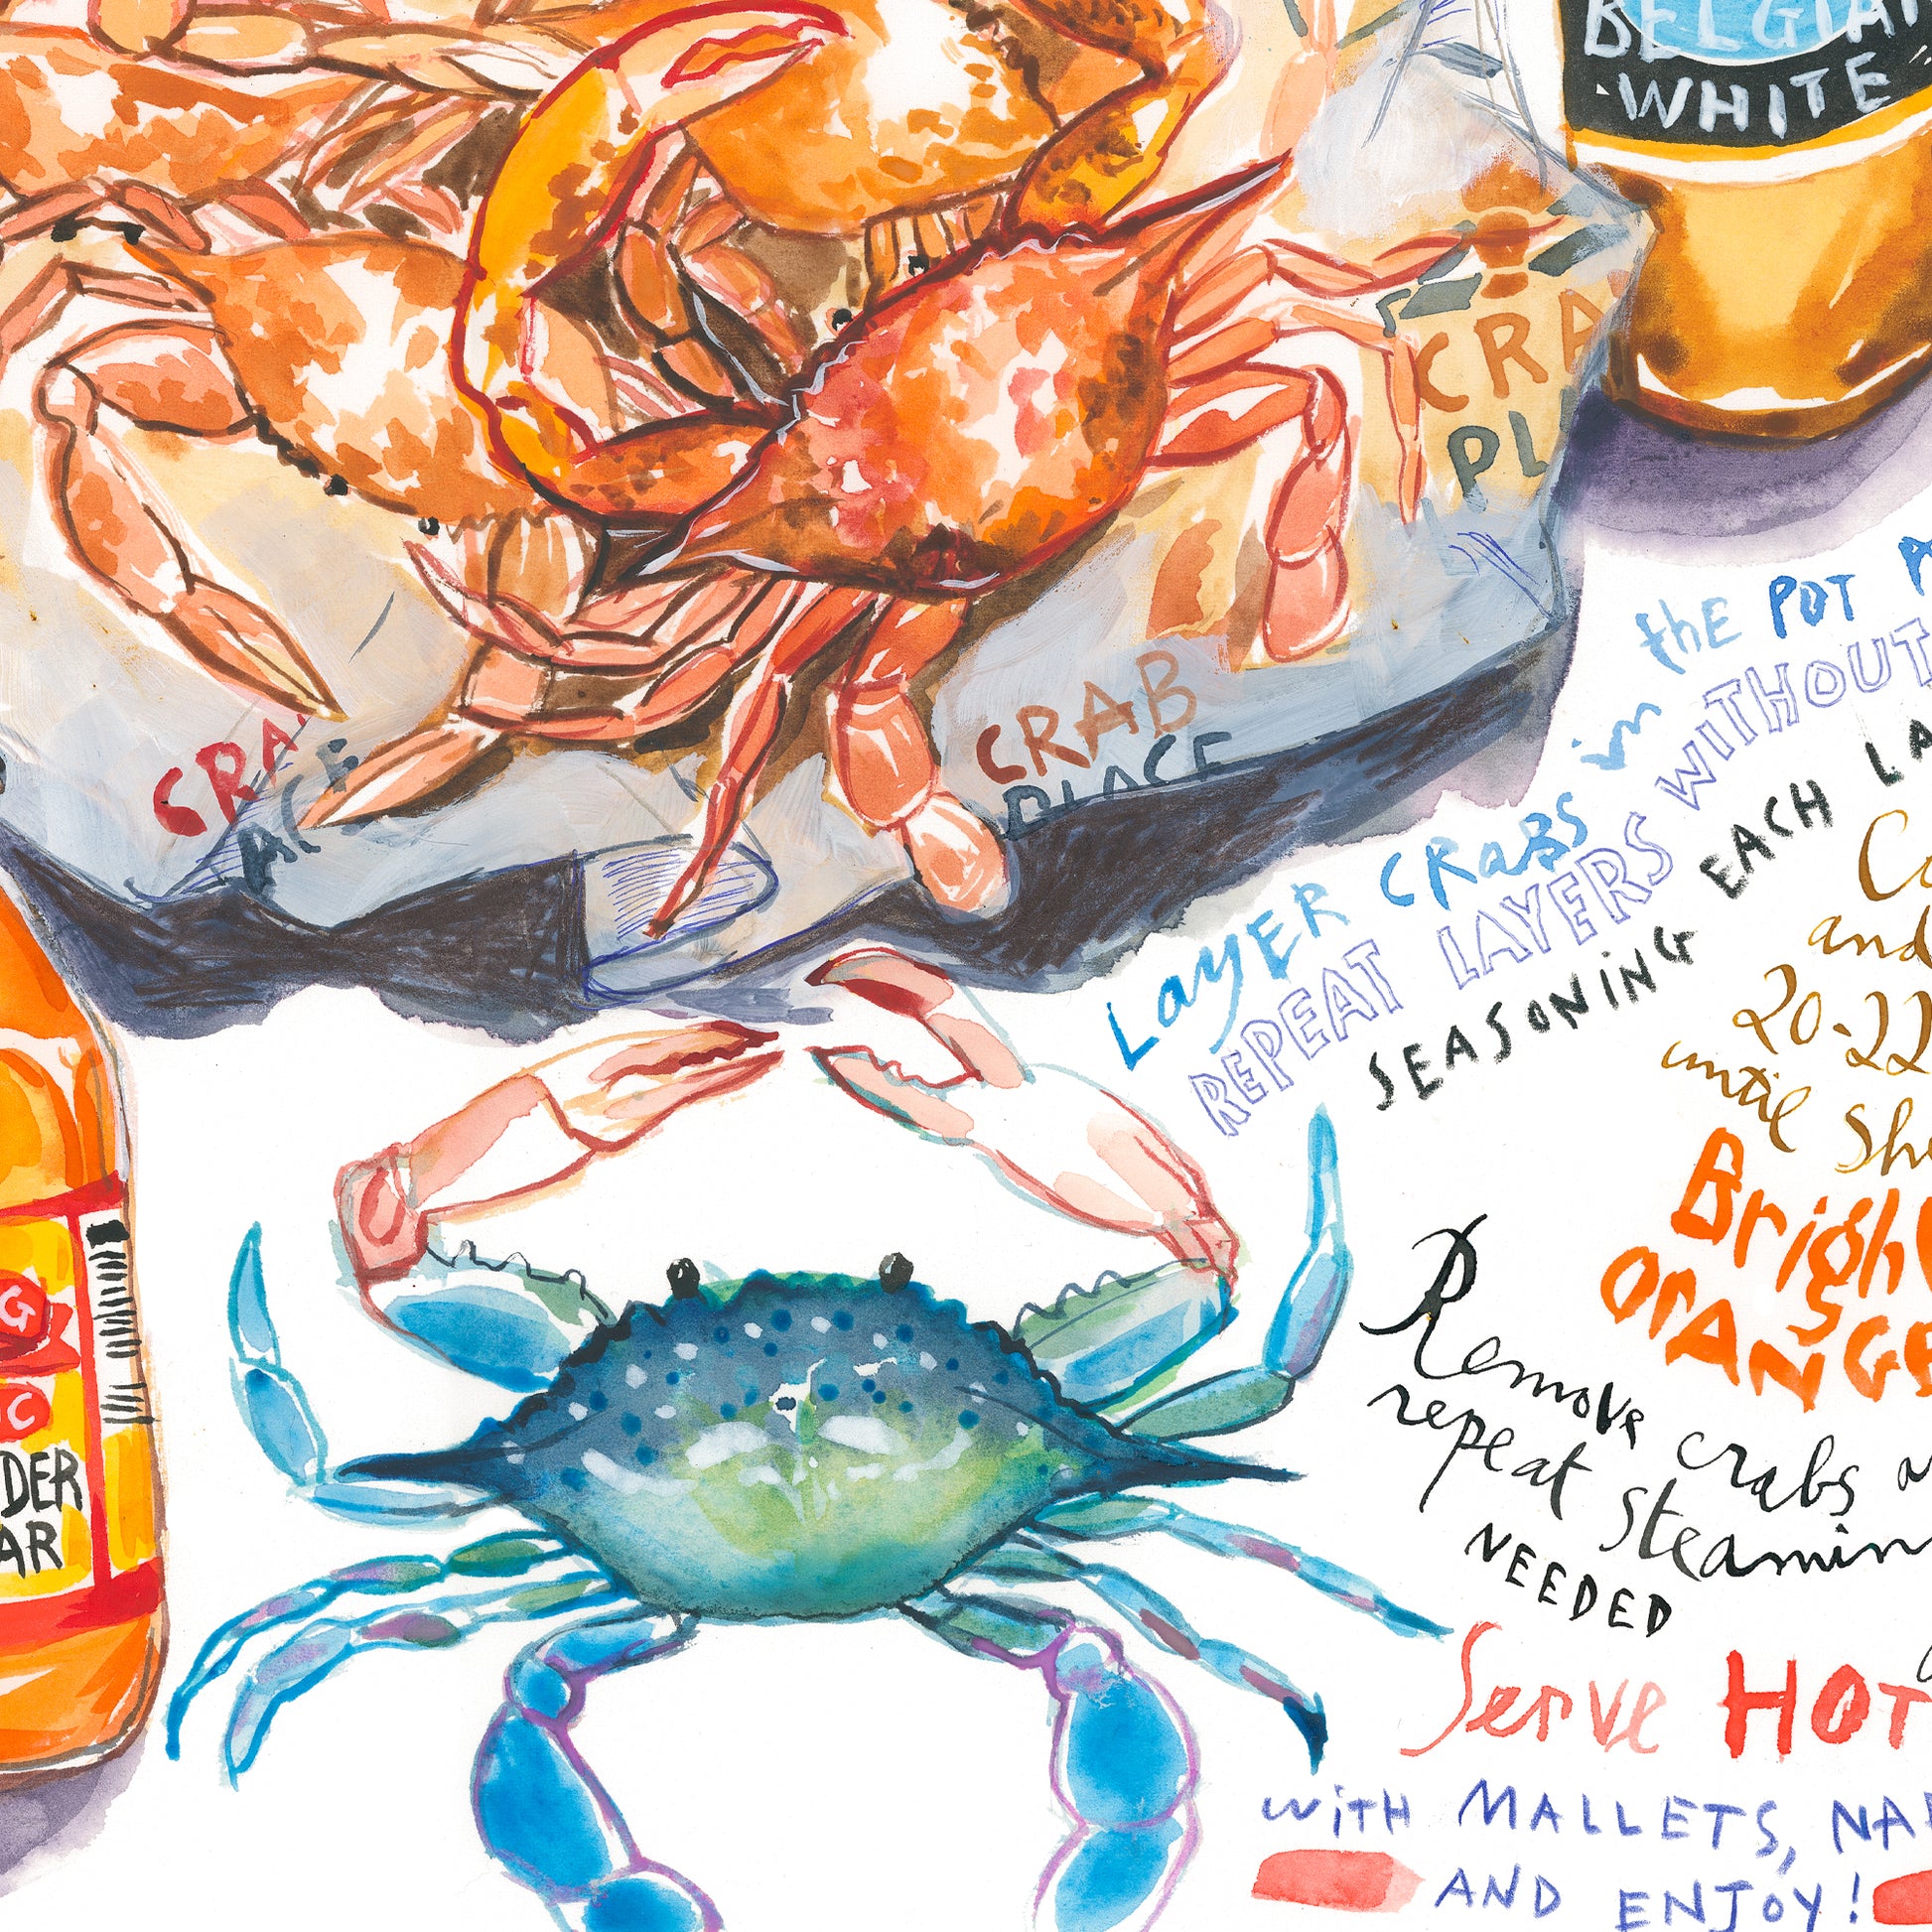 BELGIAN
WHITE
CRA
PL
CRAB
PLACE
CRA
ACE
LayER CRaBS in thE POT
REPEAT LAYERS WITHOUT
SEASONiNG EACH LA
and
20-22
until She
Bright
OrANGE
Remove crabs
repeat steamin
NEEDED
Serve HOT
G
IC
DER
AR
WiTH MALLETS, NAP
AND ENJOY!